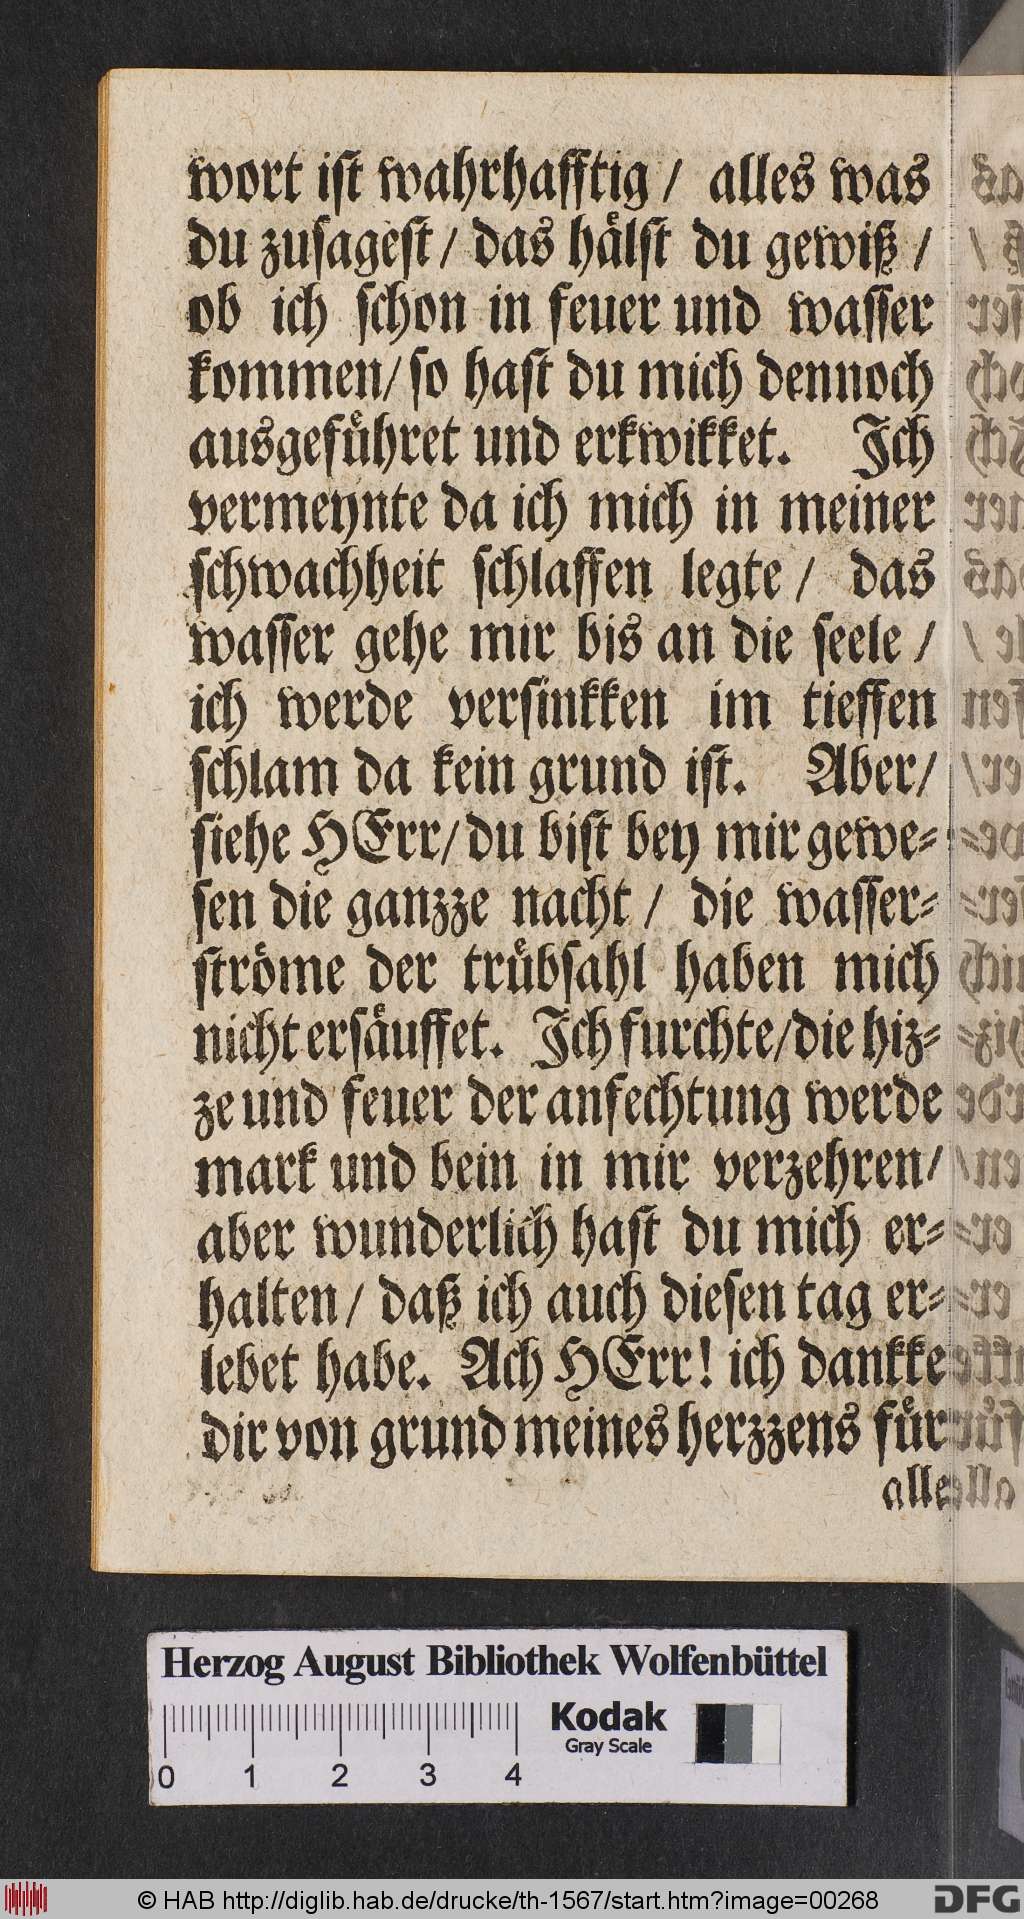 wort ist wahrhafftig / alles was
du zusagest / das hålst du gewiß /
ob ich schon in feuer und wasser
kommen / so hast du mich dennoch
ausgefůhret und erkwikket. Ich
vermeynte da ich mich in meiner
schwachheit schlaffen legte / das
wasser gehe mir bis an die seele /
ich werde versinkken im tieffen
schlam da kein grund ist. Aber /
siehe HErr / du bist bey mir gewe=
sen die ganzze nacht / die wasser=
ströme der trůbsahl haben mich
nicht ersäuffet. Ich furchte / die hiz=
ze und feuer der anfechtung werde
mark und bein in mir verzehren /
aber wunderlich hast du mich er=
halten / daß ich auch diesen tag er=
lebet habe. Ach HErr! ich dankke
dir von grund meines herzzens fůr
alle
Herzog August Bibliothek Wolfenbüttel
Kodak
Gray Scale
0 1 2 3 4
© HAB http://diglib.hab.de/drucke/th-1567/start.htm?image=00268
DFG